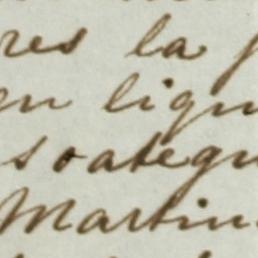 res la
en ligu
s oategu
Martin